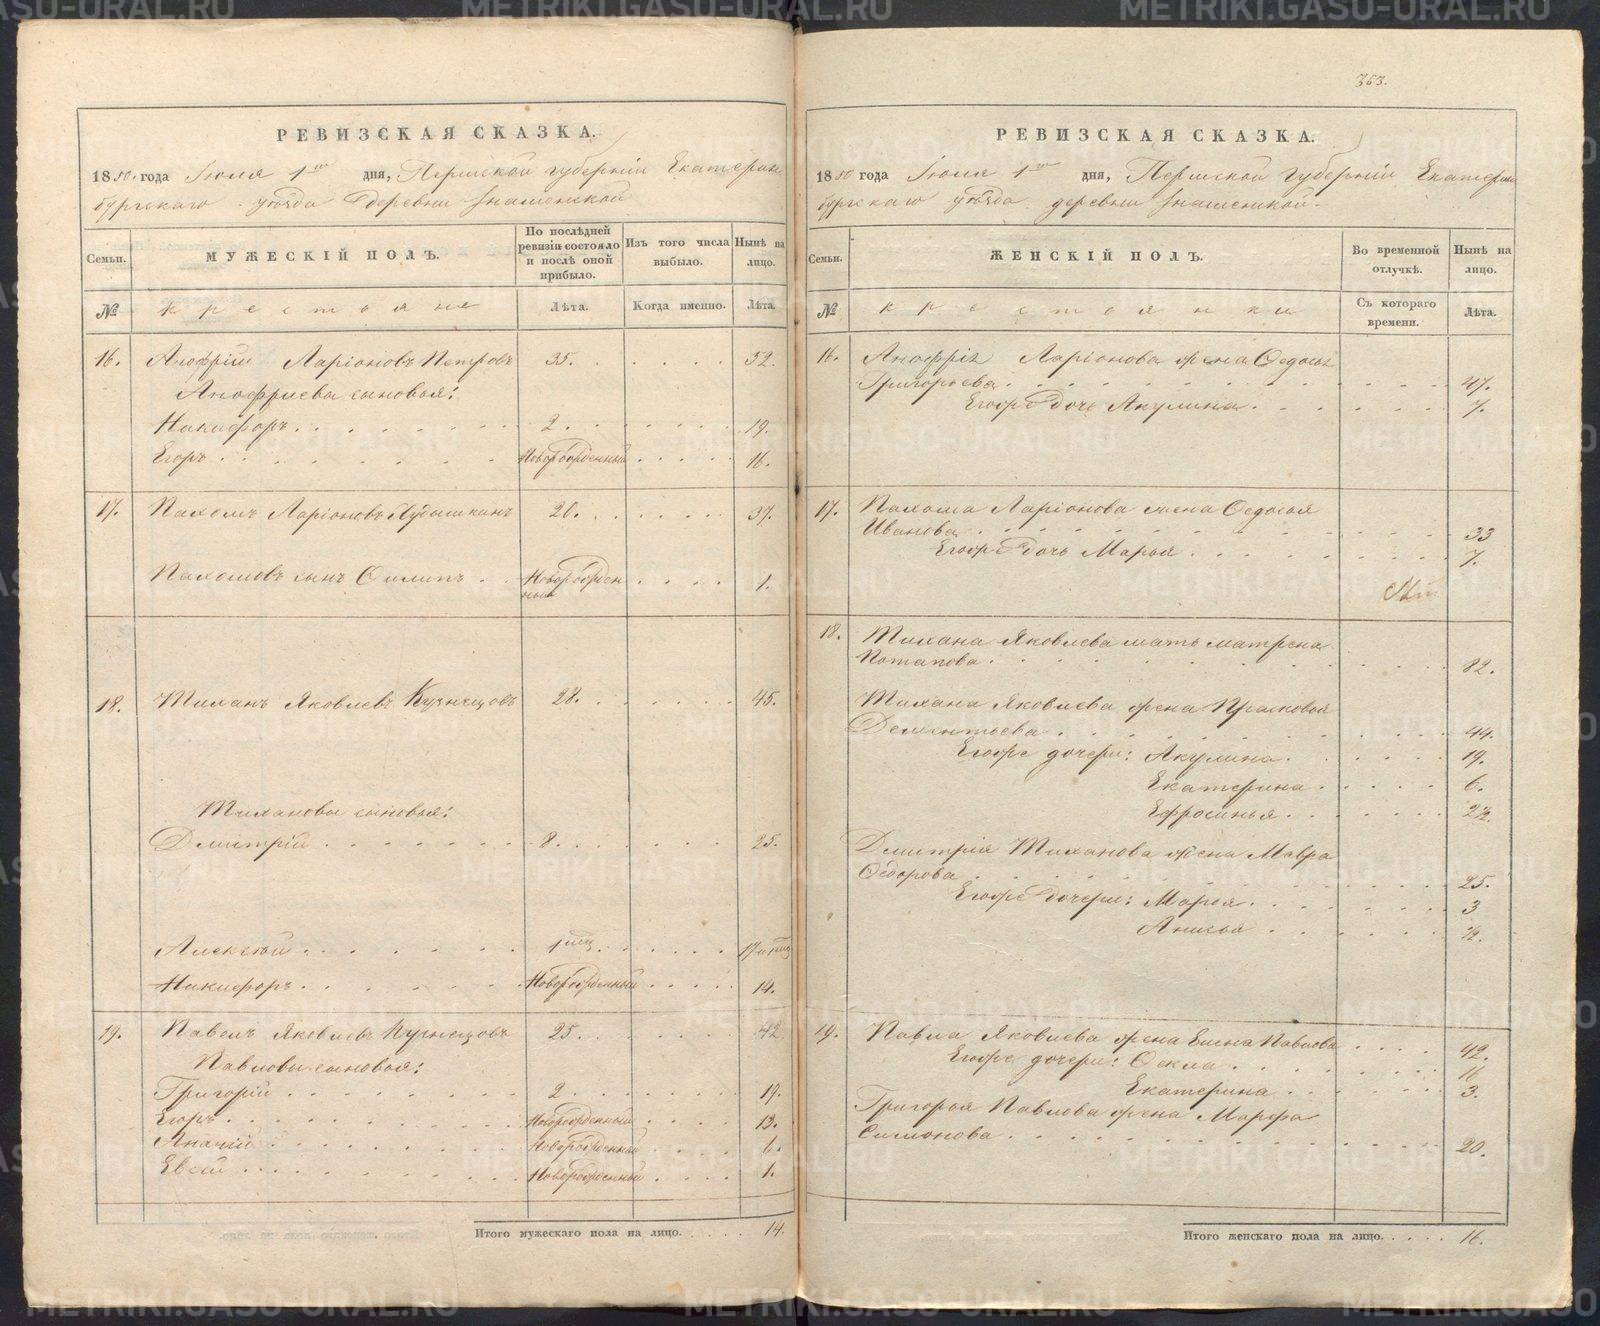 353.
РЕВИЗСКАЯ СКАЗКА.
1850 года Іюля 1го дня, Пермской губерніи Екатерин
бургскаго уѣзда деревни Знаменской
Семьи. МУЖЕСКІЙ ПОЛЪ. По послѣдней ревизіи состояло и послѣ оной прибыло. Изъ того числа выбыло. Нынѣ на лицо.
№ крестьяне Лѣта. Когда именно. Лѣта.
16. Анофрій Ларіоновъ Петровъ 35. 52.
Анофріевы сыновья:
Никифоръ 2. 19.
Егоръ Новорожденный 16.
17. Пахомъ Ларіоновъ 20. 37.
Пахомовъ сынъ Филипъ Новорожденный 1.
18. Тиханъ Яковлевъ Кузнецовъ 28. 45.
Тихановы сыновья:
Дмитрій 8. 25.
Алексѣй 1 мец. 17 и мец
Никифоръ Новорожденный 14.
19. Павелъ Яковлевъ Кузнецовъ 25. 42.
Павловы сыновья:
Григорій 2 19.
Егоръ Новорожденный 13.
Ананій Новорожденный 6.
Евсей Новорожденный 1.
Итого мужескаго пола на лицо. 14.
РЕВИЗСКАЯ СКАЗКА.
1850 года Іюля 1го дня, Пермской губерніи Екатерин
бургскаго уѣзда деревни Знаменской.
Семьи. ЖЕНСКІЙ ПОЛЪ. Во временной отлучкѣ. Нынѣ на лицо.
№ крестьянки Съ котораго времени. Лѣта.
16. Анофрія Ларіонова жена Федосья
Григорьева 47.
Егоже дочь Акулина 7.
17. Пахома Ларіонова жена Федосья
Иванова 33
Егоже дочь Марья 7.
18. Тихана Яковлева мать Матрена
Потапова 82.
Тихана Яковлева жена Прасковья
Дементьева 44.
Егоже дочери: Акулина 19.
Екатерина 6.
Ефросинья
Дмитрія Тиханова жена Мавра
Федорова 25.
Егоже дочери: Марья 3
Анисья
19. Павла Яковлева жена Елена Павлова 42.
Егоже дочери: Фекла 16
Екатерина 3.
Григорья Павлова жена Марфа
Симонова 20.
Итого женскаго пола на лицо. 16.
METRIKI.GASO-URAL.RU